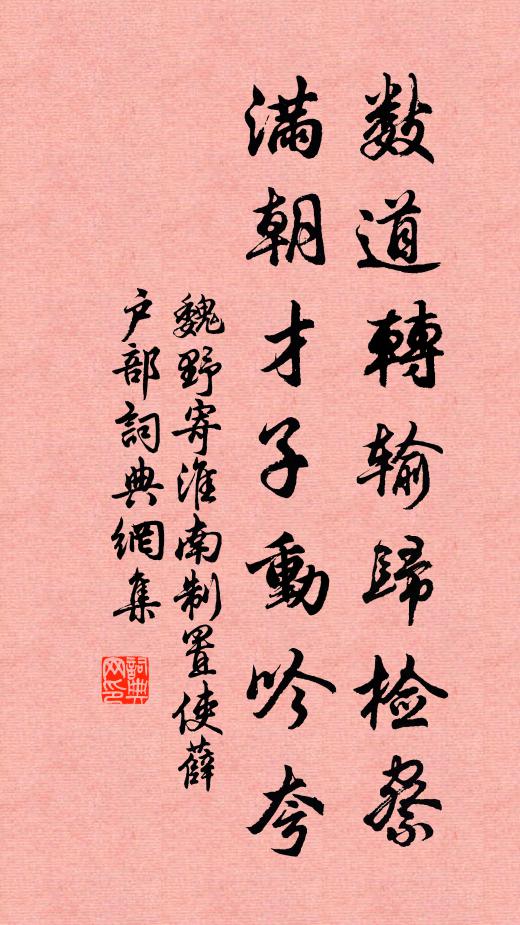 數道轉输歸檢察
滿朝才子動吟夸
魏野寄淮南制置使薛
户部詞典網集
詞典网印